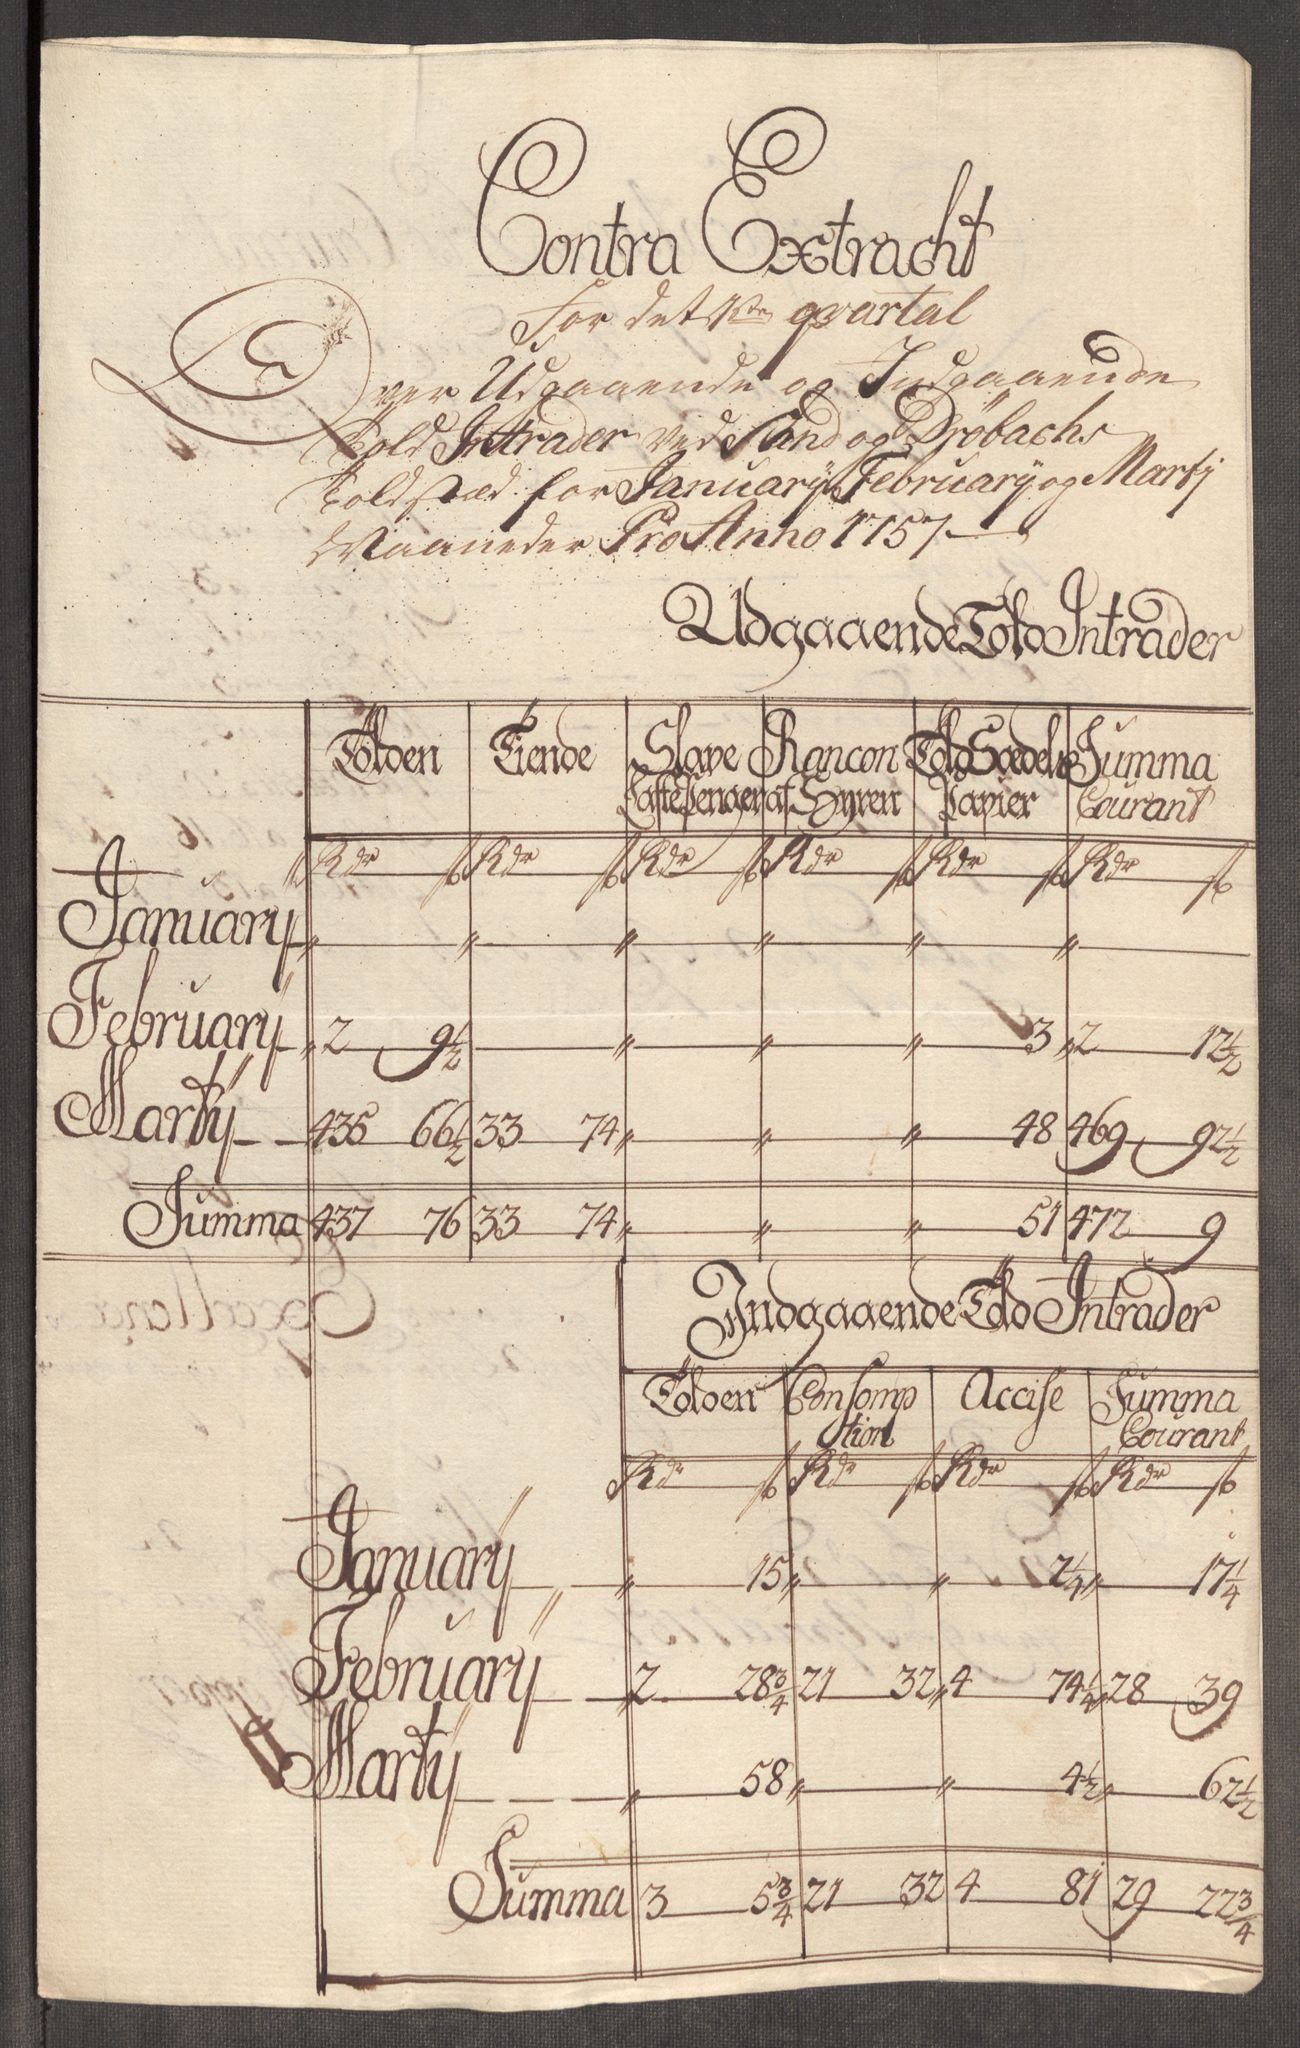 Contra Extracht
For det 1ste qvartal
Over Udgaaende og Indgaaende
Told Intrader ved Sand og Drøbachs
Toldstæd for Januarÿ, Februarÿ og Martÿ
Maaneder Pro Anno 1757
Udgaaende Told Intrader
Tolden Tiende Slave Rancon Told Sædels Summa
Caste Penger af Hyren Papier Courant
Rdr ß Rdr ß Rdr ß Rdr ß Rdr ß Rdr ß
Januarÿ " " " " " "
Februarÿ " 2 9½ " " " 3 " 2 12½
Martÿ 435 66½ 33 74 " " " 48 469 92½
Summa 437 76 33 74 " " " 51 472 9
Indgaaende Told Intrader
Tolden Consomp Accise Summa
tion Courant
Rdr ß Rdr ß Rdr ß Rdr ß
Januarÿ " 15 " " 2¼ " 17¼
Februarÿ 2 28¾ 21 32 " 4 74¼ " 28 39
Martÿ " 58 " " 4½ " 62½
Summa 3 5¾ 21 32 4 81 29 22¾